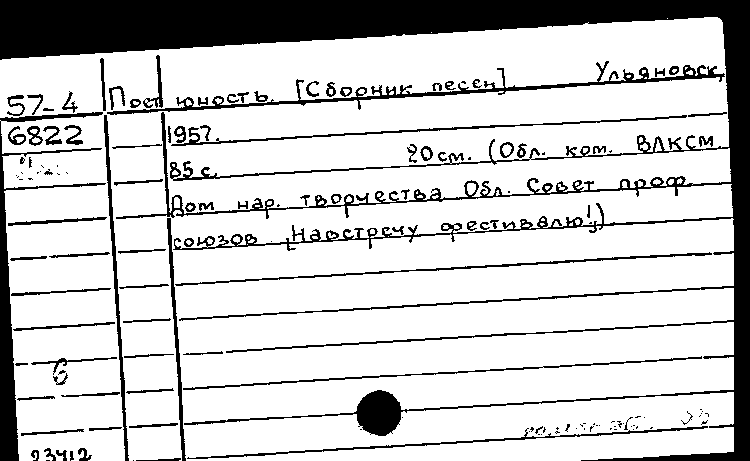 57-4 Поет юность. [Сборник песен]. Ульяновск,
6822 1957.
85 с. 20см. (Обл. ком. ВЛКСМ
Дом нар. творчества Обл. Совет проф.
союзов „Навстречу фестивалю!“)
6
23412